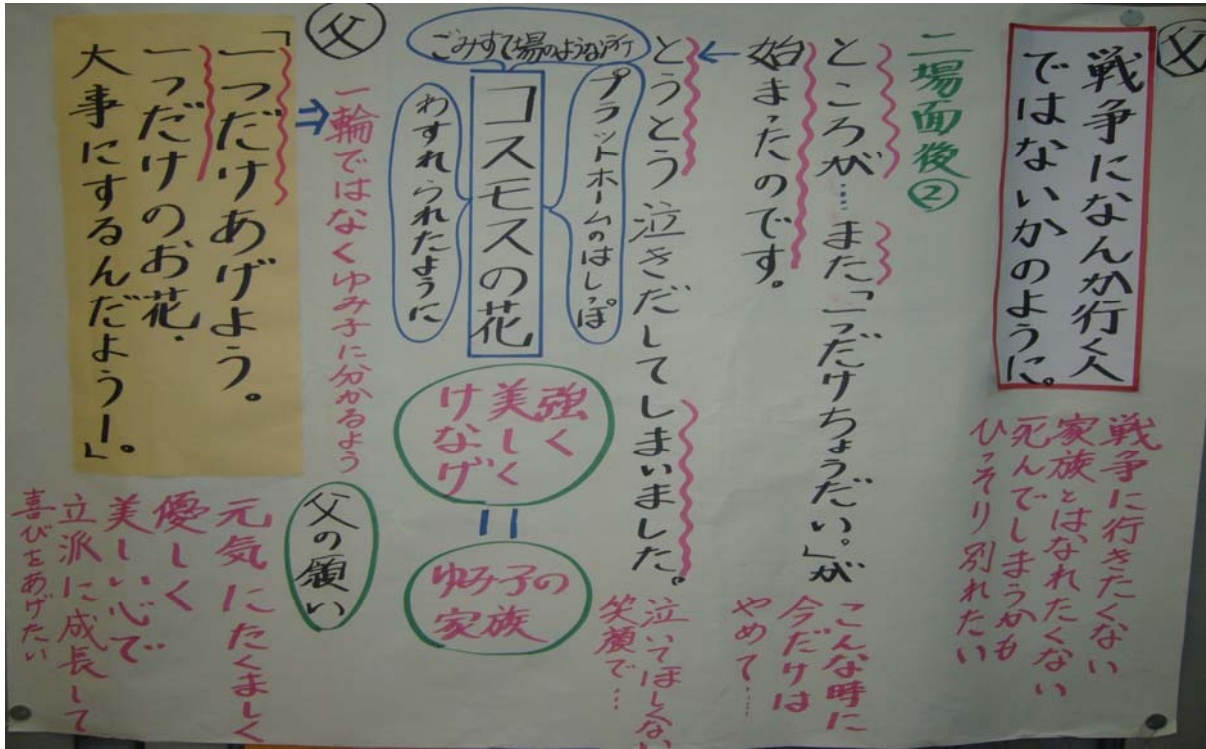 父
戦争になんか行く人
ではないかのように。
戦争に行きたくない
家族とはなれたくない
死んでしまうかも
ひっそり別れたい
二場面後②
ところが…また「一つだけちょうだい。」が
始まったのです。
こんな時に
今だけは
やめて……
←
とうとう泣きだしてしまいました。
泣いてほしくない
笑顔で…
プラットホームのはしっぽ
ごみすて場のような所
コスモスの花
わすれられたように
強く
美しく
けなげ
=
ゆみ子の
家族
⇒
一輪ではなくゆみ子に分かるよう
父
「一つだけあげよう。
一つだけのお花、
大事にするんだようー。」
父の願い
元気にたくましく
優しく
美しい心で
立派に成長して
喜びをあげたい